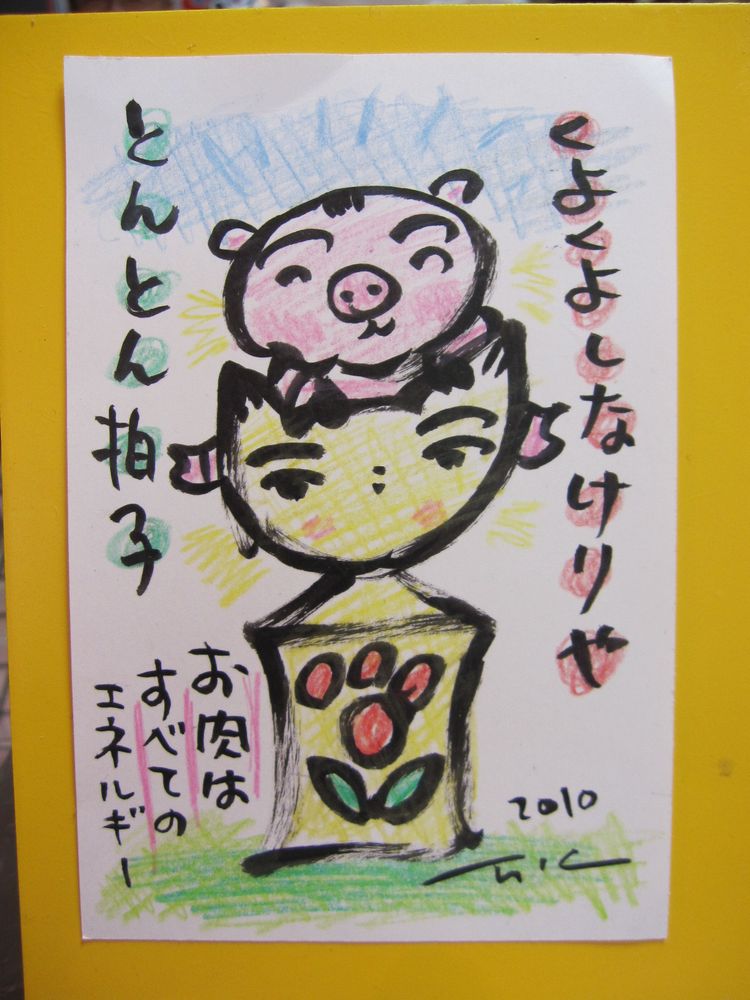 くよくよしなけりゃ
とんとん拍子
お肉は
すべての
エネルギー
2010